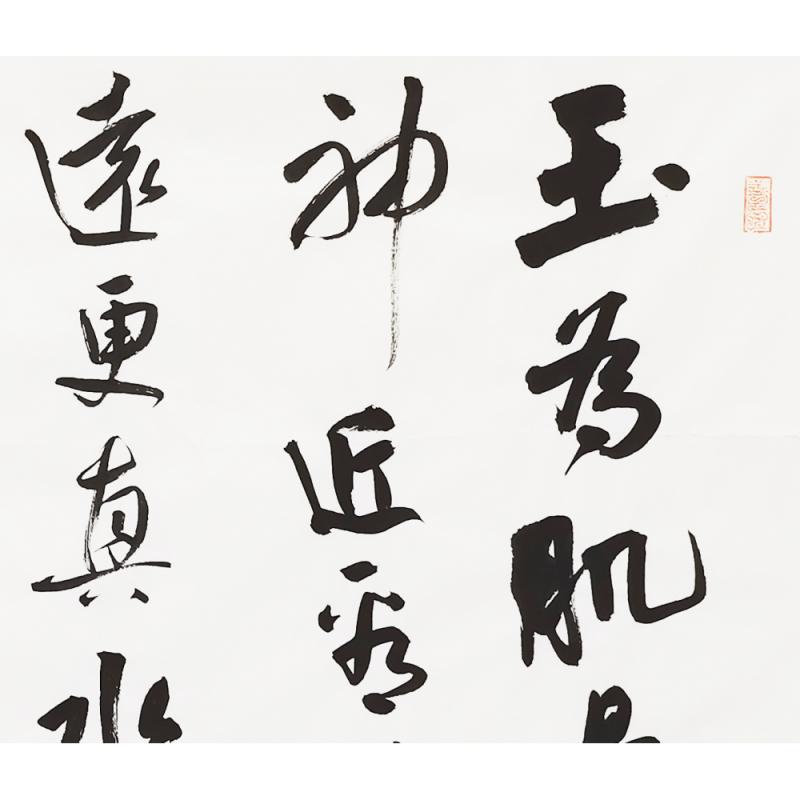 玉為肌
神近看
遠更真水